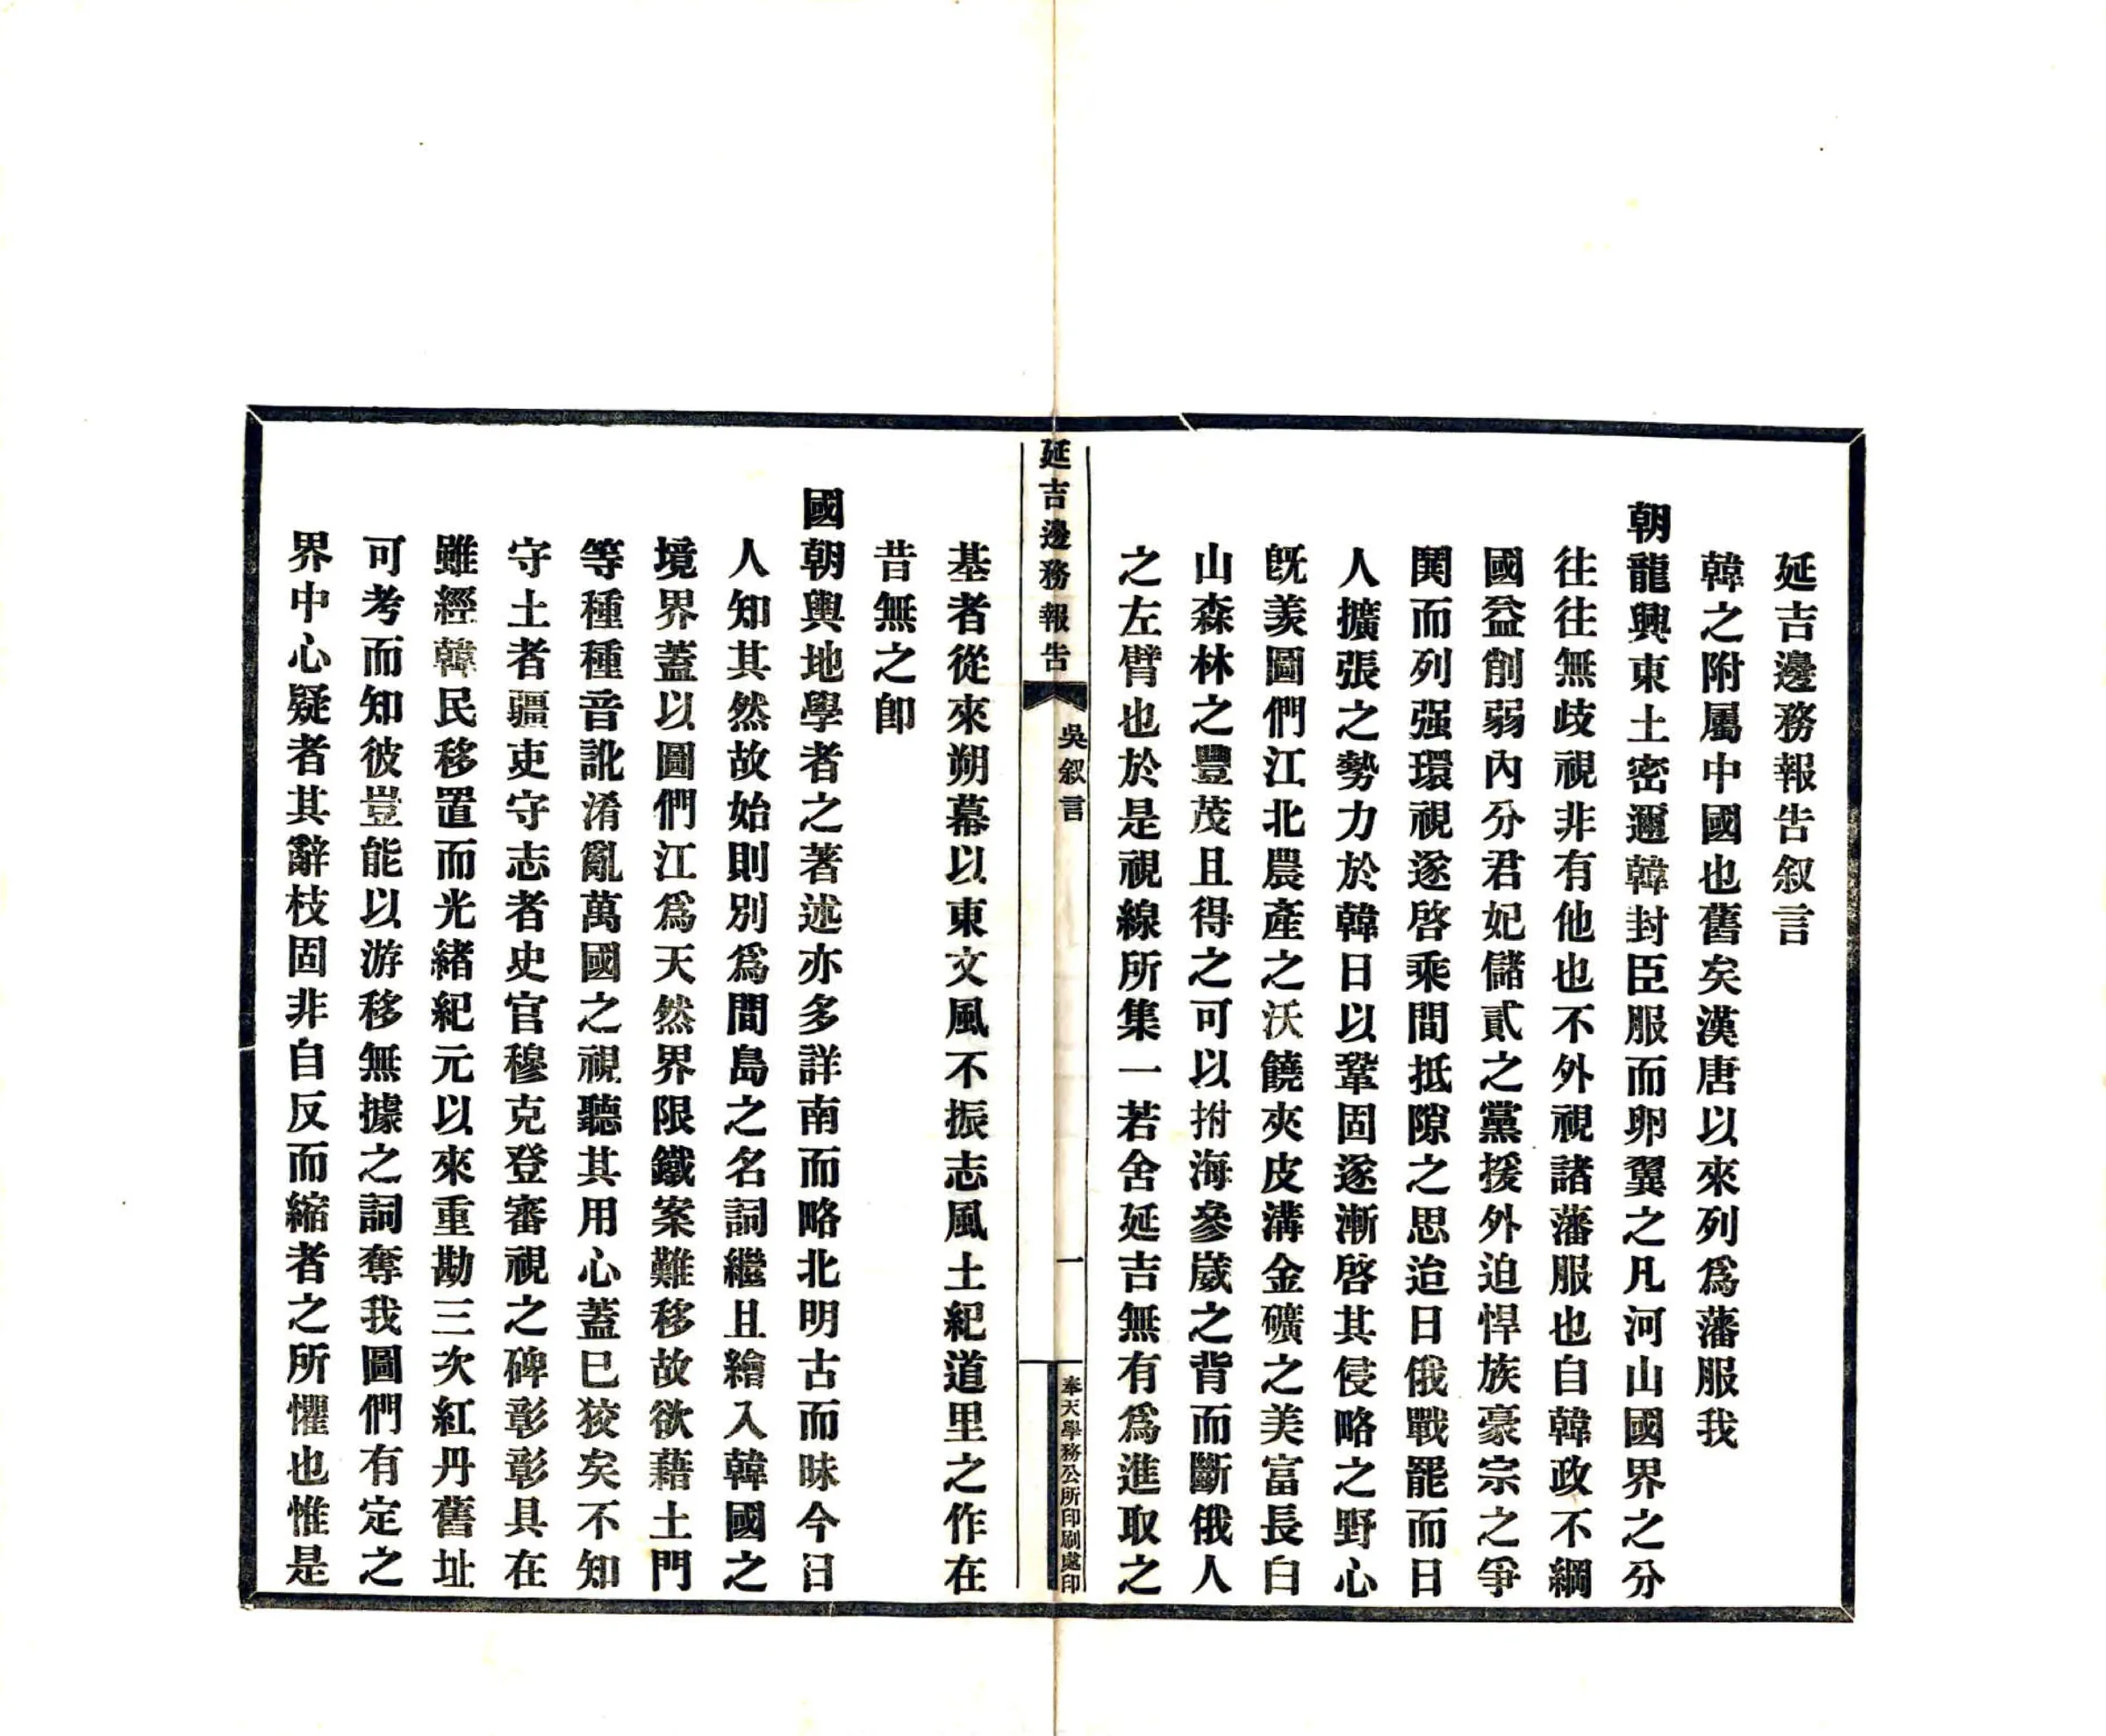 延吉邊務報告叙言
韓之附屬中國也舊矣漢唐以來列爲藩服我
朝龍興東土密邇韓封臣服而卵翼之凡河山國界之分
往往無歧視非有他也不外視諸藩服也自韓政不綱
國益削弱內分君妃儲貳之黨援外迫悍族豪宗之爭
鬨而列强環視遂啓乘間抵隙之思迨日俄戰罷而日
人擴張之勢力於韓日以鞏固遂漸啓其侵略之野心
旣羨圖們江北農產之沃饒夾皮溝金礦之美富長白
山森林之豐茂且得之可以拊海參崴之背而斷俄人
之左臂也於是視線所集一若舍延吉無有爲進取之
延吉邊務報告
吳叙言
一
奉天學務公所印刷處印
基者從來朔幕以東文風不振志風土紀道里之作在
昔無之卽
國朝輿地學者之著述亦多詳南而略北明古而昧今日
人知其然故始則別爲間島之名詞繼且繪入韓國之
境界蓋以圖們江爲天然界限鐵案難移故欲藉土門
等種種音訛淆亂萬國之視聽其用心蓋已狡矣不知
守土者疆吏守志者史官穆克登審視之碑彰彰具在
雖經韓民移置而光緒紀元以來重勘三次紅丹舊址
可考而知彼豈能以游移無據之詞奪我圖們有定之
界中心疑者其辭枝固非自反而縮者之所懼也惟是